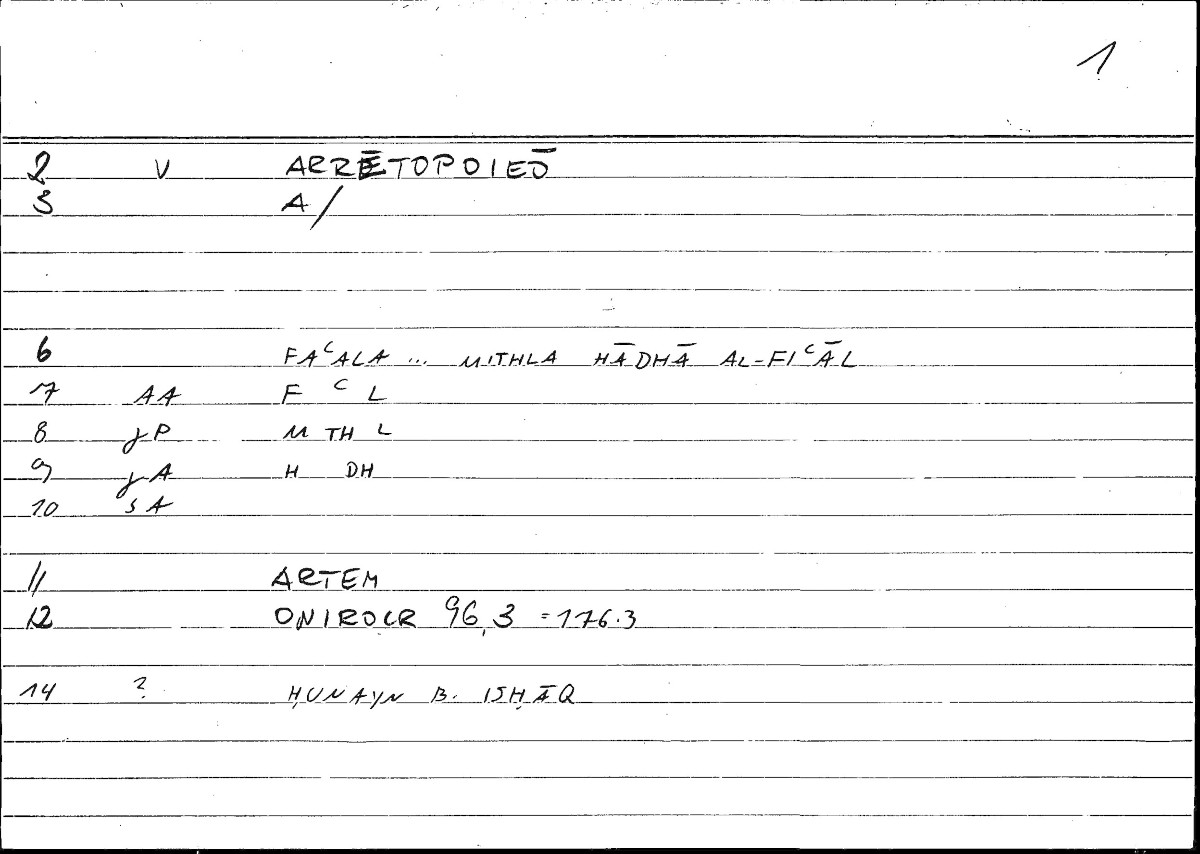 1
2 V ARRĒTOPOIEŌ
3 A/
6 FAʿALA ... MITHLA HĀDHĀ AL-FIʿĀL
7 AA F ʿ L
8 gP M TH L
9 gA H DH
10 SA
11 ARTEM
12 ONIROCR 96,3 =176.3
14 ? ḤUNAYN B. ISḤĀQ